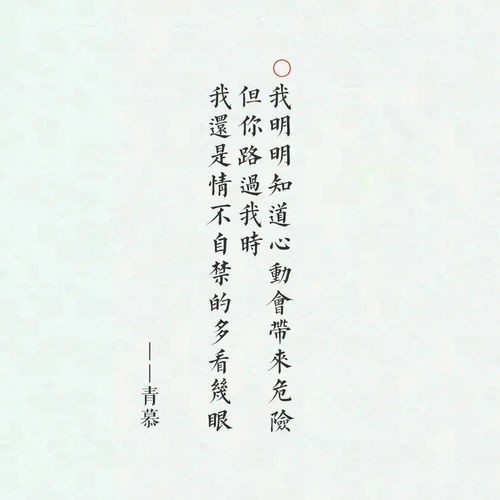 ○我明明知道心動會帶來危險
但你路過我時
我還是情不自禁的多看幾眼
——青慕